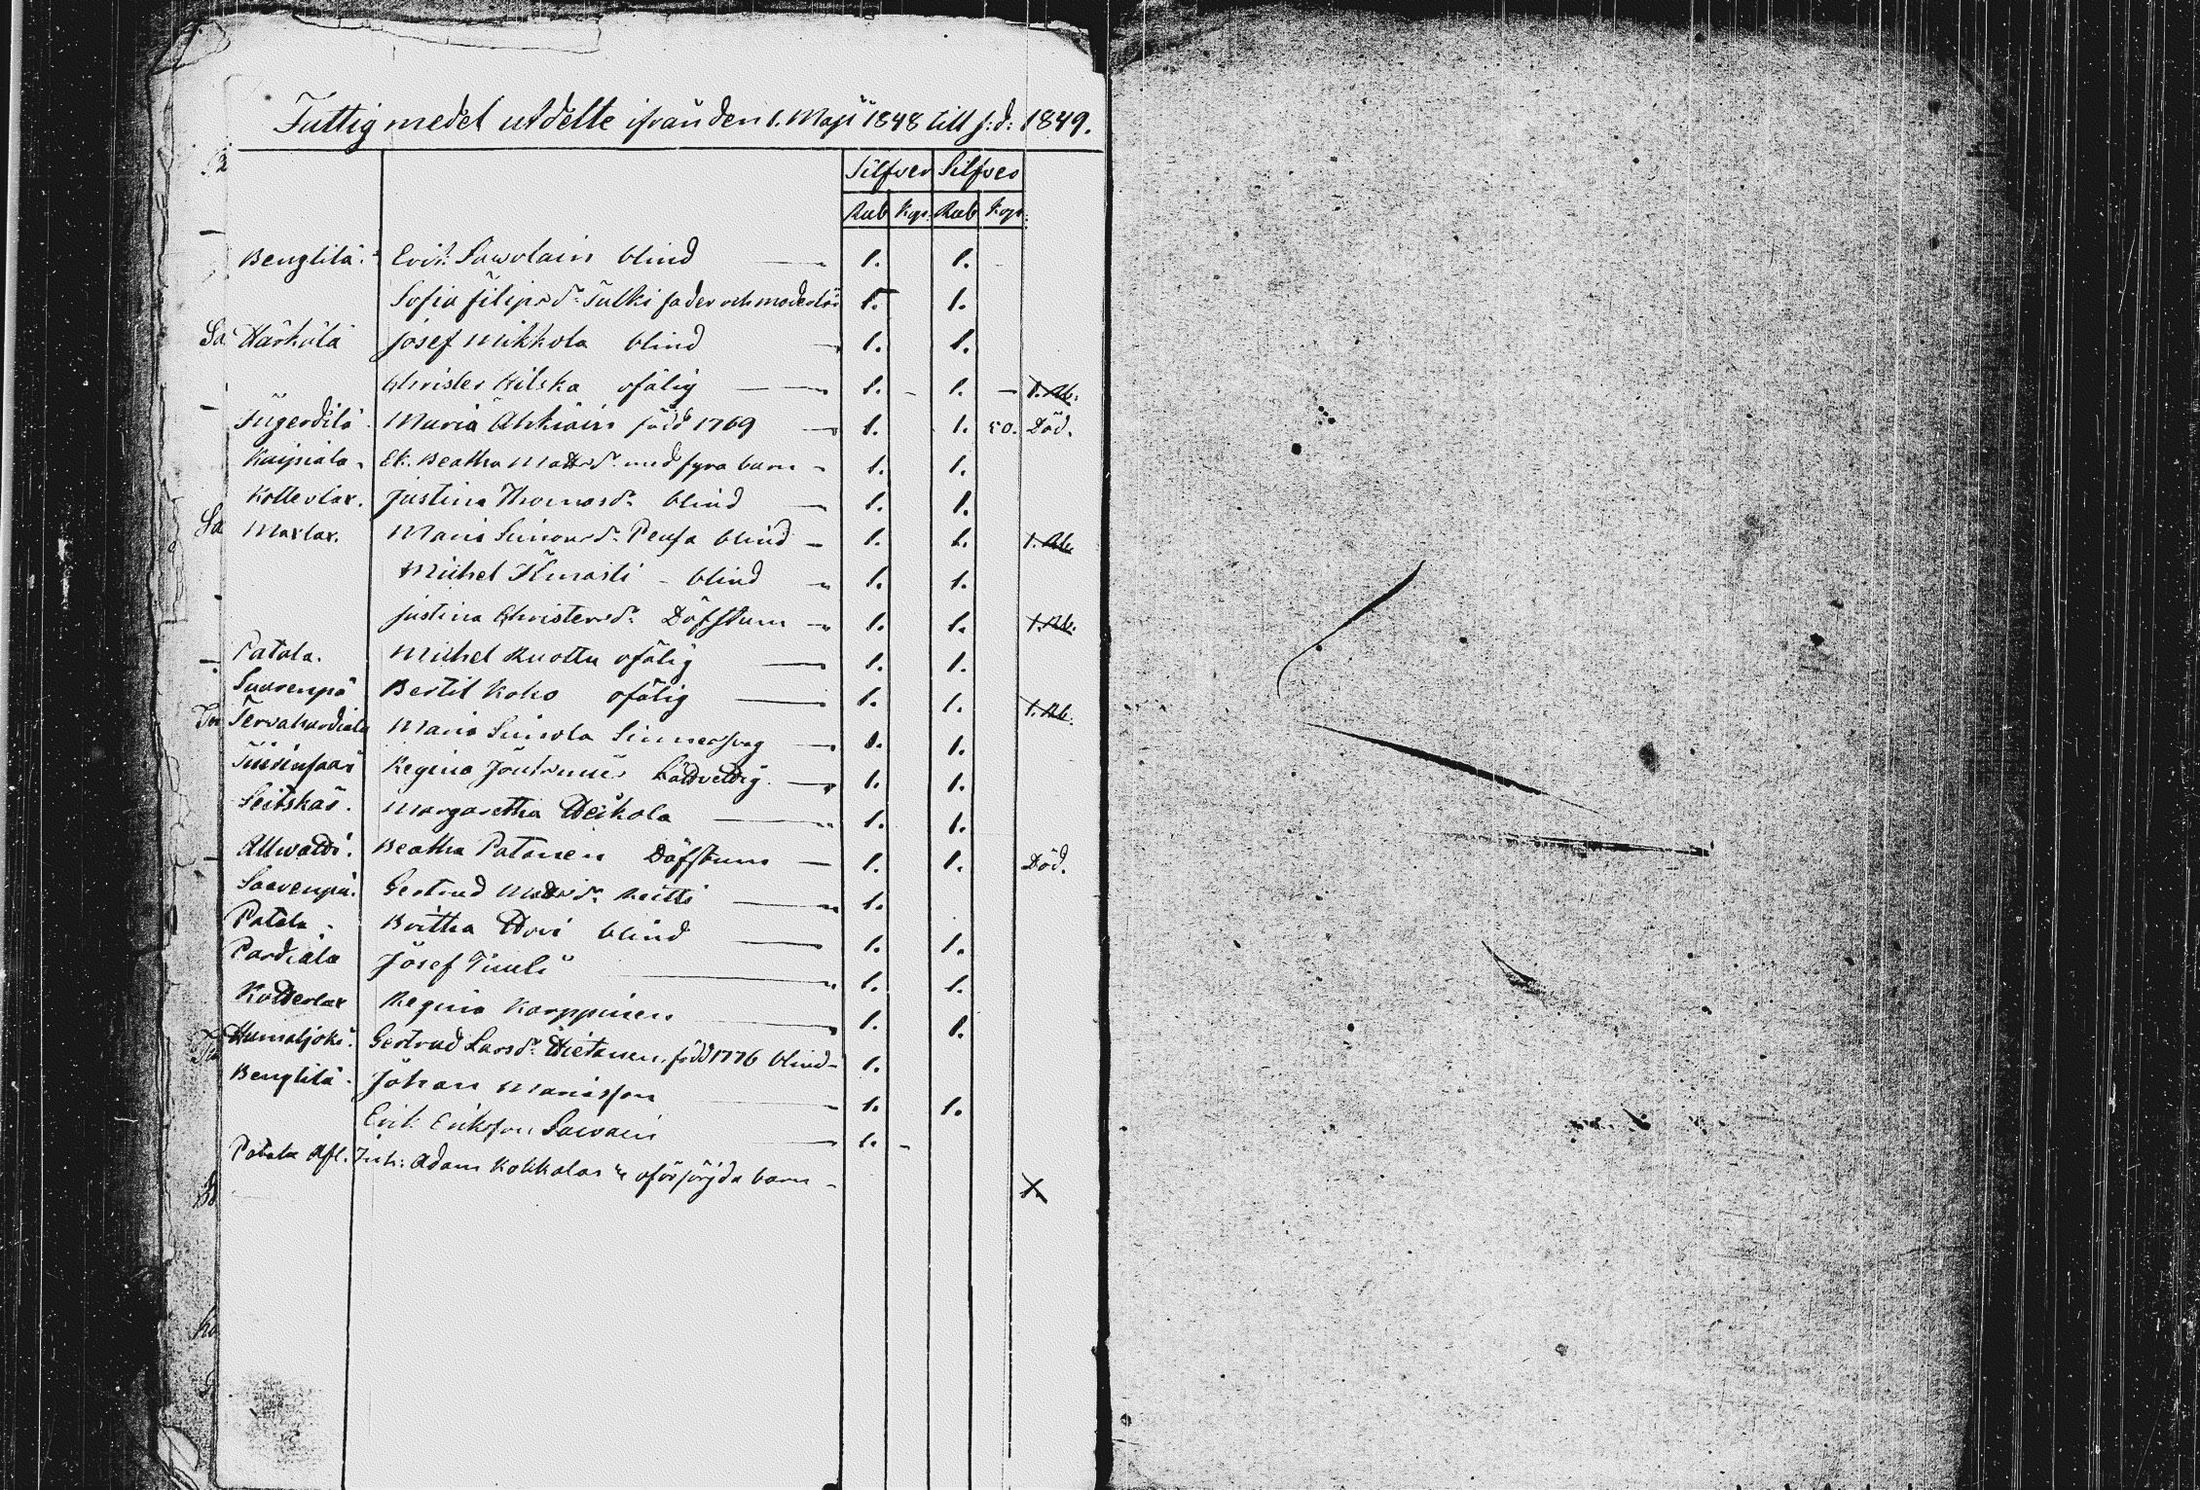 Fattig medel utdelte ifrån den 1. Maji 1848 till s:d: 1849.
Silfver Silfver
Rub Kop. Rub Kop:
Benglilä: Erik Sawolain blind — 1. 1.
Sofia Filipsd:r Tulki fader och moderlös 1. 1.
Härkälä Josef Mikkola blind — 1. 1.
Christer Kilska ofälig — 1. – 1. — 1. Rb:
Ingerdilä Maria Ahkiain född 1769 — 1. 1. 50. Död.
Kaipiala – Ek. Beatha Mattsd:r med fyra barn – 1. 1.
Kotterlax. Justina Thomasd:r blind — 1. 1.
Maxlax. Maria Simonsd:r Peusa blind – 1. 1. 1. Rb.
Michel – blind – 1. 1.
Justina Christersd:r Döfstum – 1. 1. 1. Rb.
Patala. Michel Ruottu ofälig — 1. 1.
Saarenpä Bertil Koho ofälig — 1. 1. 1. Rb.
Tervahardiala Maria Simola Sinnessvag — 1. 1.
Regina — 1. 1.
Seitskär. Margaretha Heikola — 1. 1.
Allwatti. Beatha Patanen Döfstum — 1. 1. Död.
Saarenpä. Gertrud Mattsd:r — 1.
Patala. Britha blind — 1. 1.
Pardiala Josef Tuuli — 1. 1.
Kotterlax Regina Karppinen — 1. 1.
Humaljoki. Gertrud Larsd:r Hietanen, född 1776 blind – 1.
Benglilä. Johan Mariasson — 1. 1.
Erik Eriksson Sawain — 1. –
Patala Afl. Inh: Adam Kokkolas oförsörjda barn – 1.